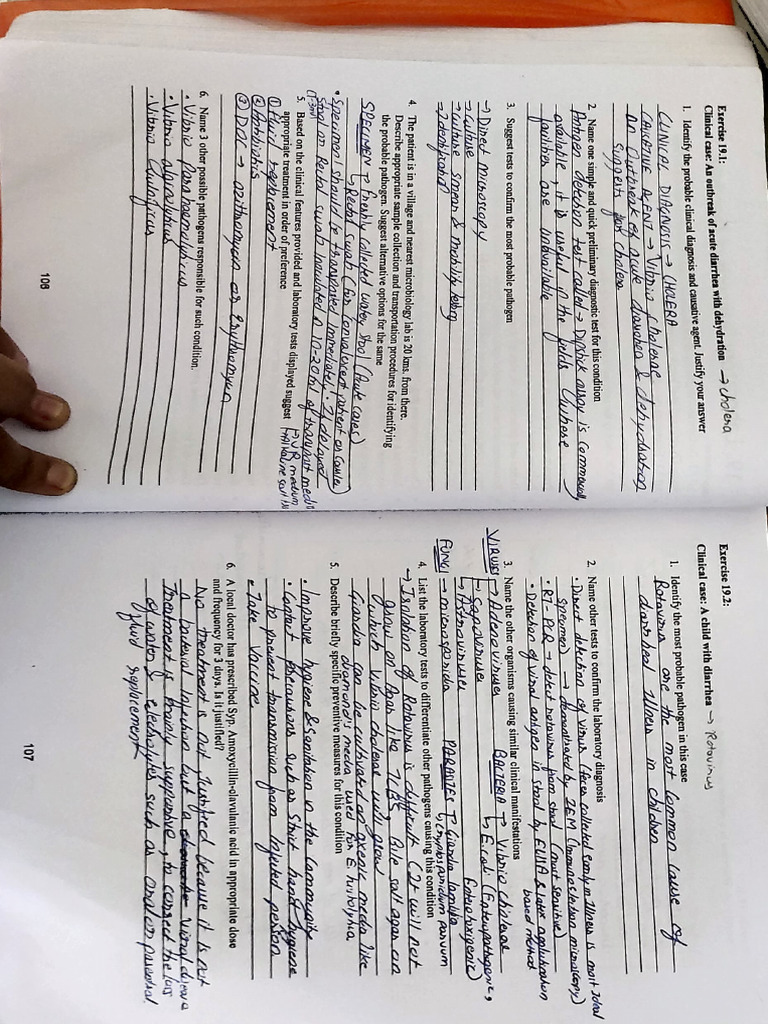 Exercise 19.1:
Clinical case: An outbreak of acute diarrhea with dehydration → cholera
1. Identify the probable clinical diagnosis and causative agent. Justify your answer
CLINICAL DIAGNOSIS → CHOLERA
CAUSATIVE AGENT → Vibrio cholerae
An outbreak of acute diarrhea & dehydration
suggests for cholera
2. Name one simple and quick preliminary diagnostic test for this condition
Antigen detection test called → Dipstick assay is commercially
available, it is useful in the fields where
facilities are unavailable
3. Suggest tests to confirm the most probable pathogen
→ Direct microscopy
→ culture
→ culture smear & motility testing
→ Identification
4. The patient is in a village and nearest microbiology lab is 20 kms. from there.
Describe appropriate sample collection and transportation procedures for identifying
the probable pathogen. Suggest alternative options for the same
SPECIMEN → Freshly collected watery stool (Acute cases)
↳ Rectal swab (for convalescent patient or carrier)
• Specimen should be transported immediately. If delayed
stool or Rectal swab inoculated in 10-20ml of transport media
(1-3ml) → VR medium
5. Based on the clinical features provided and laboratory tests displayed suggest
appropriate treatment in order of preference
① Fluid replacement
② Antibiotics
③ DOC → azithromycin or Erythromycin
6. Name 3 other possible pathogens responsible for such condition.
• Vibrio parahaemolyticus
• Vibrio alginolyticus
• Vibrio vulnificus
106
Exercise 19.2:
Clinical case: A child with diarrhea → Rotavirus
1. Identify the most probable pathogen in this case
Rotavirus one the most common cause of
diarrheal illness in children
2. Name other tests to confirm the laboratory diagnosis
• Direct detection of virus (feces collected early in illness is most ideal
specimen) → demonstrated by IEM (Immunoelectron microscopy)
• RT-PCR → detect rotavirus from stool (most sensitive)
• Detection of viral antigen in stool by ELISA & latex agglutination
based method
3. Name the other organisms causing similar clinical manifestations
VIRUSES → Adenoviruses
↳ Sapoviruses
↳ Astroviruses
BACTERIA → Vibrio cholerae
↳ E.coli (Enteropathogenic,
Enterotoxigenic)
FUNGI → microsporidia
PARASITES → Giardia lamblia
↳ Cryptosporidium parvum
4. List the laboratory tests to differentiate other pathogens causing this condition
→ Isolation of Rotavirus is difficult (It will not
grow on Agar like TCBS, Bile salt agar on
which Vibrio cholerae will grow
Giardia can be cultivated on axenic media like
diamond's media used for E. histolytica
5. Describe briefly specific preventive measures for this condition
• Improve hygiene & sanitation in the community
• Contact precautions such as strict hand hygiene
to prevent transmission from infected person
• Take vaccine
6. A local doctor has prescribed Syp. Amoxycillin-clavulanic acid in appropriate dose
and frequency for 3 days. Is it justified?
No treatment is not justified because it is not
a bacterial infection but a viral disease
Treatment is mainly supportive, to correct the loss
of water & electrolytes such as oral or parenteral
fluid replacement
107